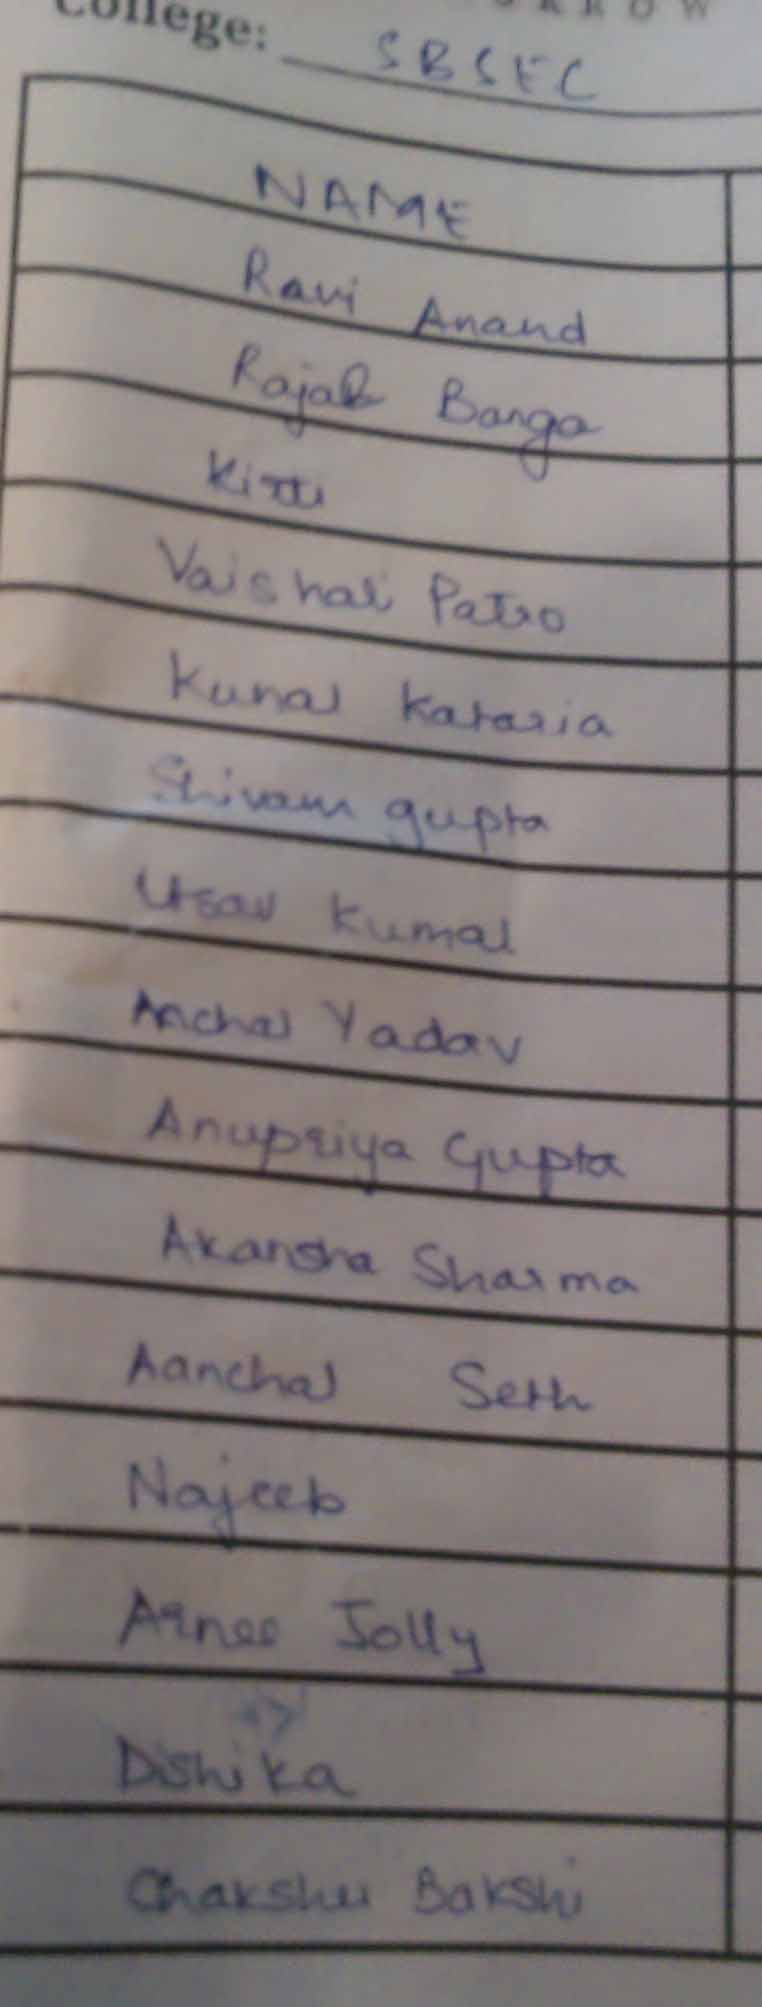 College: SBSEC
NAME
Ravi Anand
Rajak Banga
Kirti
Vaishali Patro
Kunal Kataria
Shivam gupta
Utsav Kumal
Anchal Yadav
Anupriya Gupta
Akansha Sharma
Aanchal Seth
Najeeb
Arnee Jolly
Dishika
Chakshu Bakshi